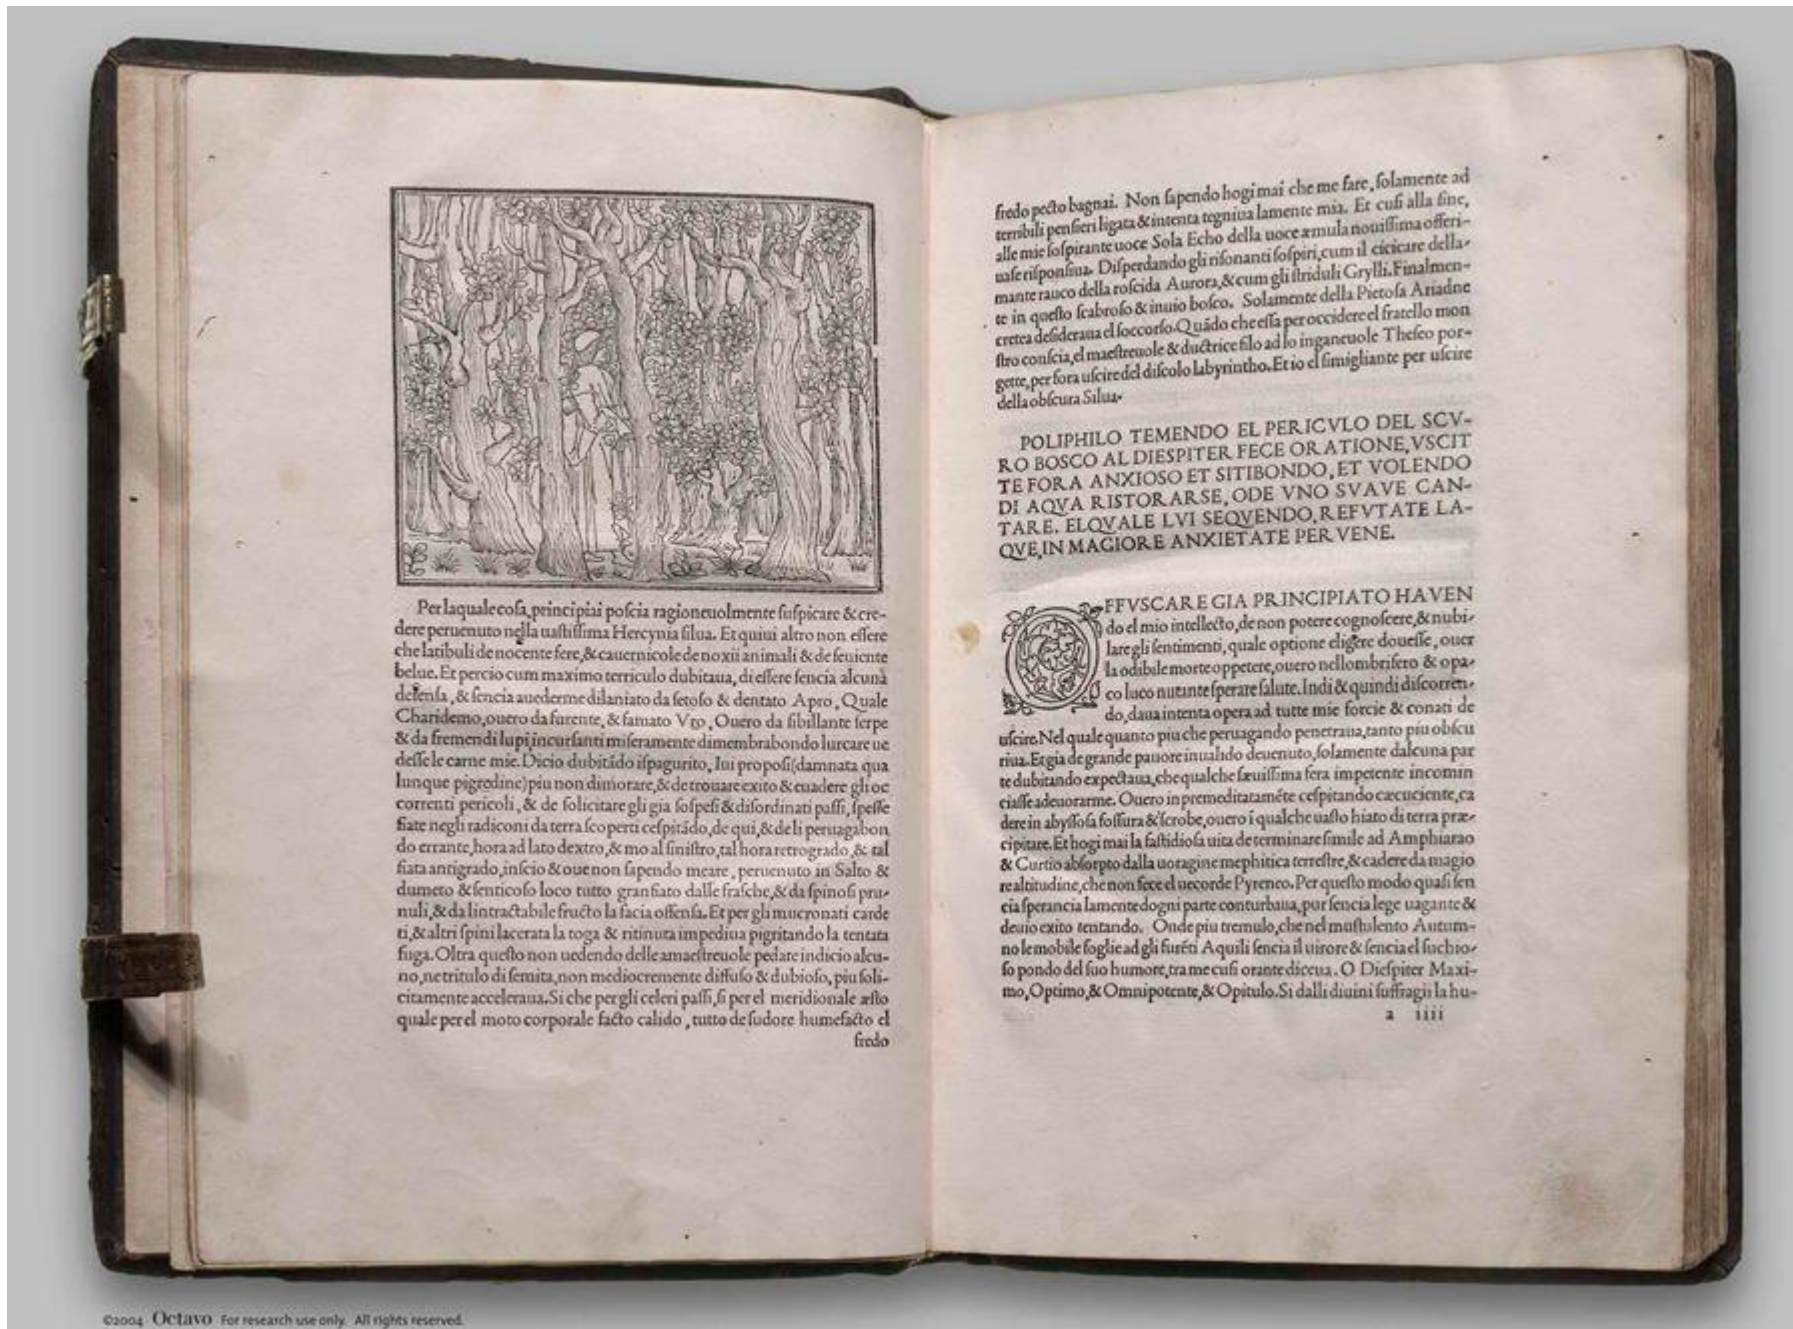 Per laquale cosa, principiai poscia ragioneuolmente suspicare & cre-
dere peruenuto nella uastissima Hercynia silua. Et quiui altro non essere
che latibuli de nocente fere, & cauernicole de noxii animali & de seuiente
belue. Et percio cum maximo terriculo dubitaua, di essere sencia alcuna
defensa, & sencia auederme dilaniato da setoso & dentato Apro, Quale
Charidemo, ouero da furente, & famato Vro, Ouero da sibillante serpe
& da fremendi lupi incursanti miseramente dimembrabondo lurcare ue
desse le carne mie. Dicio dubitãdo ispagurito, Iui proposi (damnata qua
lunque pigredine) piu non dimorare, & de trouare exito & euadere gli oc
correnti pericoli, & de solicitare gli gia sospesi & disordinati passi, spesse
fiate negli radiconi da terra scoperti cespitãdo, de qui, & de li peruagabon
do errante, hora ad lato dextro, & mo al sinistro, tal hora retrogrado, & tal
fiata antigrado, inscio & oue non sapendo meare, peruenuto in Salto &
dumeto & senticoso loco tutto granfiato dalle frasche, & da spinosi pru-
nuli, & da lintractabile fructo la facia offensa. Et per gli mucronati carde
ti, & altri spini lacerata la toga & ritinuta impediua pigritando la tentata
fuga. Oltra questo non uedendo delle amaestreuole pedate indicio alcu-
no, ne tritulo di semita, non mediocremente diffuso & dubioso, piu soli-
citamente acceleraua. Si che per gli celeri passi, si per el meridionale æsto
quale per el moto corporale facto calido, tutto de sudore humefacto el
fredo
fredo pecto bagnai. Non sapendo hogi mai che me fare, solamente ad
terribili pensieri ligata & intenta tegniua lamente mia. Et cusi alla fine,
alle mie sospirante uoce Sola Echo della uoce æmula nouissima offeri-
uase risponsiua. Disperdando gli risonanti sospiri, cum il cicicare della-
mante rauco della roscida Aurora, & cum gli striduli Grylli. Finalmen-
te in questo scabroso & inuio bosco. Solamente della Pietosa Ariadne
cretea desideraua el soccorso. Quãdo che essa per occidere el fratello mon
stro conscia, el maestreuole & ductrice filo ad lo inganeuole Theseo por-
gette, per fora uscire del discolo labyrintho. Et io el simigliante per uscire
della obscura Silua.
POLIPHILO TEMENDO EL PERICVLO DEL SCV-
RO BOSCO AL DIESPITER FECE ORATIONE, VSCIT
TE FORA ANXIOSO ET SITIBONDO, ET VOLENDO
DI AQVA RISTORARSE, ODE VNO SVAVE CAN-
TARE. ELQVALE LVI SEQVENDO, REFVTATE LA-
QVE, IN MAGIORE ANXIETATE PERVENE.
OFFVSCARE GIA PRINCIPIATO HAVEN
do el mio intellecto, de non potere cognoscere, & nubi-
lare gli sentimenti, quale optione eligere douesse, ouer
la odibile morte oppetere, ouero nellombrifero & opa-
co luco nutante sperare salute. Indi & quindi discorren-
do, daua intenta opera ad tutte mie forcie & conati de
uscire. Nel quale quanto piu che peruagando penetraua, tanto piu obscu
riua. Et gia de grande pauore inualido deuenuto, solamente dalcuna par
te dubitando expectaua, che qualche sæuissima fera impetente incomin
ciasse adeuorarme. Ouero inpremeditataméte cespitando cæcuciente, ca
dere in abyssosa fossura & scrobe, ouero ĩ qualche uasto hiato di terra præ-
cipitare. Et hogi mai la fastidiosa uita de terminare simile ad Amphiarao
& Curtio absorpto dalla uoragine mephitica terrestre, & cadere da magio
re altitudine, che non fece el uecorde Pyreneo. Per questo modo quasi sen
cia sperancia lamente dogni parte conturbaua, pur sencia lege uagante &
deuio exito tentando. Onde piu tremulo, che nel mustulento Autum-
no le mobile foglie ad gli furẽti Aquili sencia il uirore & sencia el suchio-
so pondo del suo humore, tra me cusi orante diceua. O Diespiter Maxi-
mo, Optimo, & Omnipotente, & Opitulo. Si dalli diuini suffragii la hu-
a iiii
©2004 Octavo For research use only. All rights reserved.